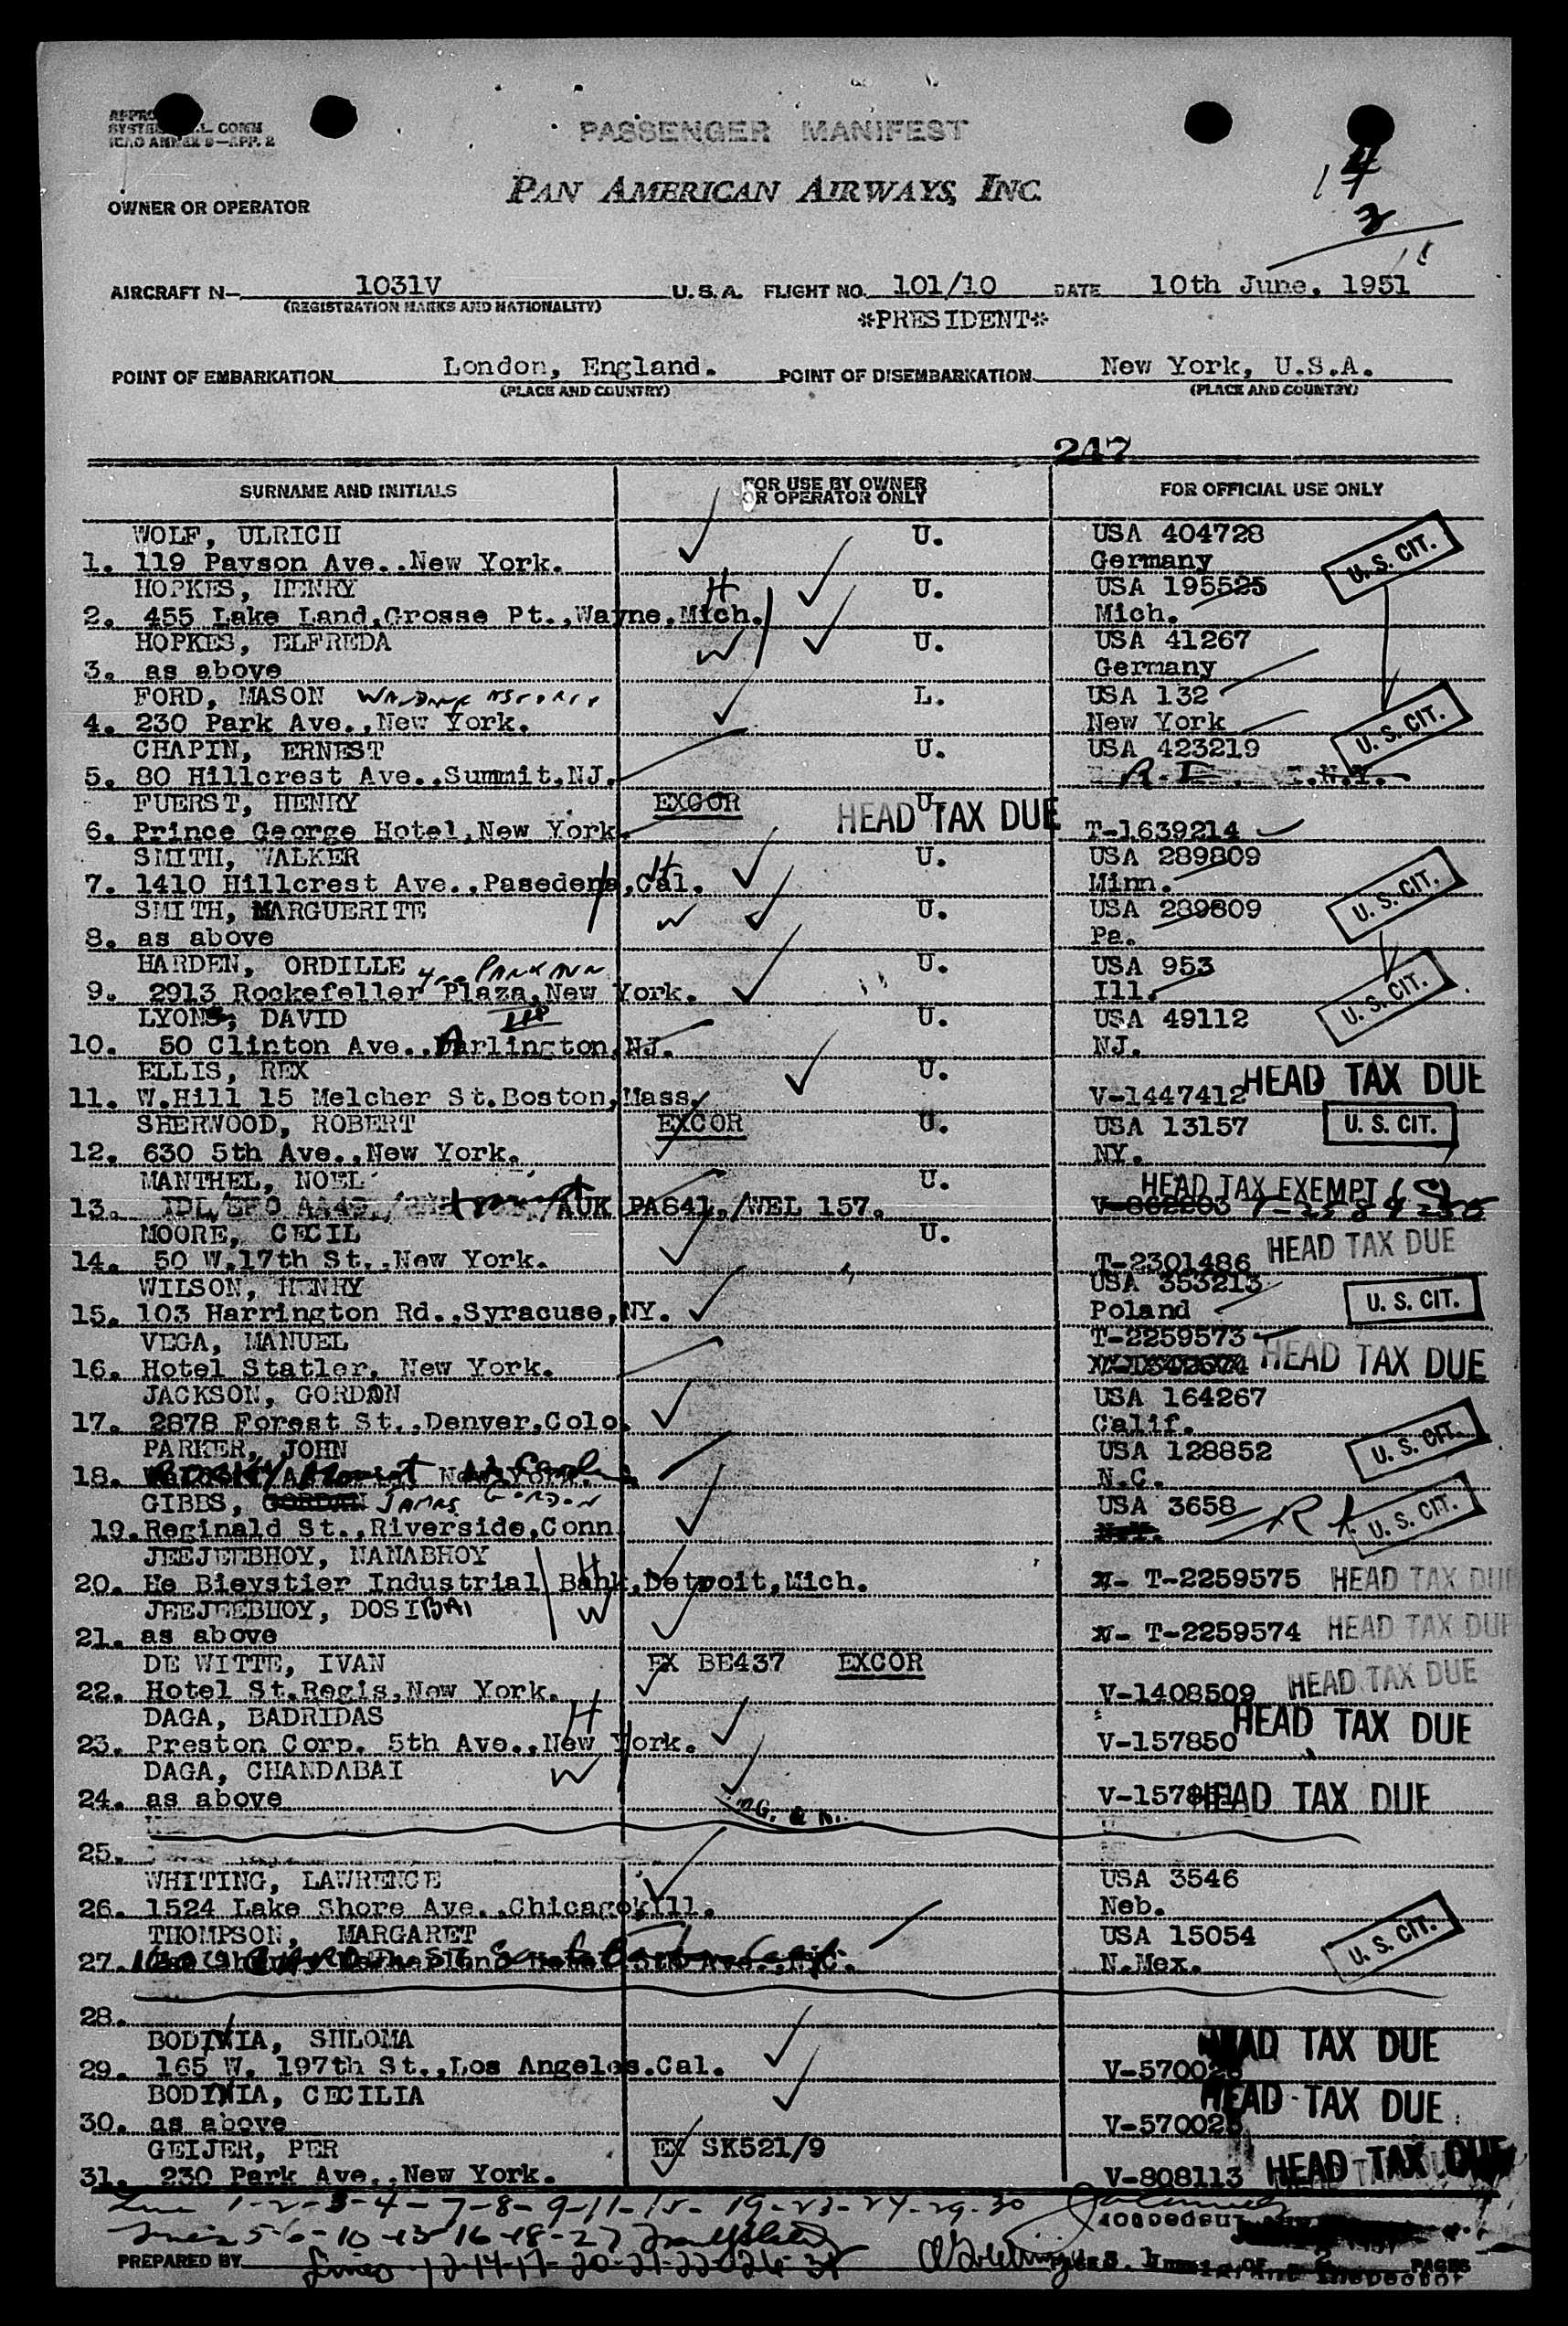 APPRO
SYSTE L. COMM
ICAO ANNEX 9—APP. 2
PASSENGER MANIFEST
PAN AMERICAN AIRWAYS, INC.
OWNER OR OPERATOR
14
3
AIRCRAFT N— 1031V U.S.A. FLIGHT NO. 101/10 DATE 10th June, 1951
(REGISTRATION MARKS AND NATIONALITY)
*PRESIDENT*
POINT OF EMBARKATION London, England. POINT OF DISEMBARKATION New York, U.S.A.
(PLACE AND COUNTRY) (PLACE AND COUNTRY)
247
SURNAME AND INITIALS FOR USE BY OWNER OR OPERATOR ONLY FOR OFFICIAL USE ONLY
WOLF, ULRICH U. USA 404728
1. 119 Payson Ave..New York. Germany U. S. CIT.
HOPKES, HENRY H U. USA 195525
2. 455 Lake Land,Grosse Pt.,Wayne,Mich. Mich.
HOPKES, ELFREDA W U. USA 41267
3. as above Germany
FORD, MASON L. USA 132
4. 230 Park Ave.,New York. New York U. S. CIT.
CHAPIN, ERNEST U. USA 423219
5. 80 Hillcrest Ave.,Summit,NJ.
FUERST, HENRY EXCOR U. HEAD TAX DUE
6. Prince George Hotel,New York. T-1639214
SMITH, WALKER H U. USA 289809
7. 1410 Hillcrest Ave.,Pasedena,Cal. Minn. U. S. CIT.
SMITH, MARGUERITE W U. USA 289809
8. as above Pa.
HARDEN, ORDILLE U. USA 953
9. 2913 Rockefeller Plaza,New York. Ill. U. S. CIT.
LYONS, DAVID U. USA 49112
10. 50 Clinton Ave..Arlington,NJ. NJ.
ELLIS, REX U. HEAD TAX DUE
11. W.Hill 15 Melcher St.Boston,Mass. V-1447412
SHERWOOD, ROBERT EXCOR U. USA 13157 U. S. CIT.
12. 630 5th Ave.,New York. NY.
MANTHEL, NOEL U. HEAD TAX EXEMPT
13. AUK PA841./WEL 157.
MOORE, CECIL U.
14. 50 W.17th St.,New York. T-2301486 HEAD TAX DUE
WILSON, HENRY USA 353213
15. 103 Harrington Rd.,Syracuse,NY. Poland U. S. CIT.
VEGA, MANUEL T-2259573
16. Hotel Statler, New York. HEAD TAX DUE
JACKSON, GORDON USA 164267
17. 2878 Forest St.,Denver,Colo. Calif. U. S. CIT.
PARKER, JOHN USA 128852
18. N.C.
GIBBS, JAMES GORDON USA 3658
19. Reginald St.,Riverside,Conn U. S. CIT.
JEEJEEBHOY, NANABHOY H
20. He Bieystier Industrial Bank,Detroit,Mich. T-2259575 HEAD TAX DUE
JEEJEEBHOY, DOSIBAI W
21. as above T-2259574 HEAD TAX DUE
DE WITTE, IVAN EX BE437 EXCOR
22. Hotel St.Regis,New York. V-1408509 HEAD TAX DUE
DAGA, BADRIDAS H
23. Preston Corp. 5th Ave.,New York. V-157850 HEAD TAX DUE
DAGA, CHANDABAI W
24. as above HEAD TAX DUE
25.
WHITING, LAWRENCE USA 3546
26. 1524 Lake Shore Ave.,Chicago,Ill. Neb.
THOMPSON, MARGARET USA 15054 U. S. CIT.
27. N.Mex.
28.
SHLOMA HEAD TAX DUE
29. 165 W. 197th St.,Los Angeles.Cal.
CECILIA HEAD TAX DUE
30. as above
GEIJER, PER EX SK521/9
31. 230 Park Ave.,New York. V-808113 HEAD TAX DUE
1-2-3-4-7-8-9-11-15-19-23-24-29-30
Lines 5-6-10-13-16-18-27
PREPARED BY Lines 12-14-17-20-21-22-26-31 OF PAGES